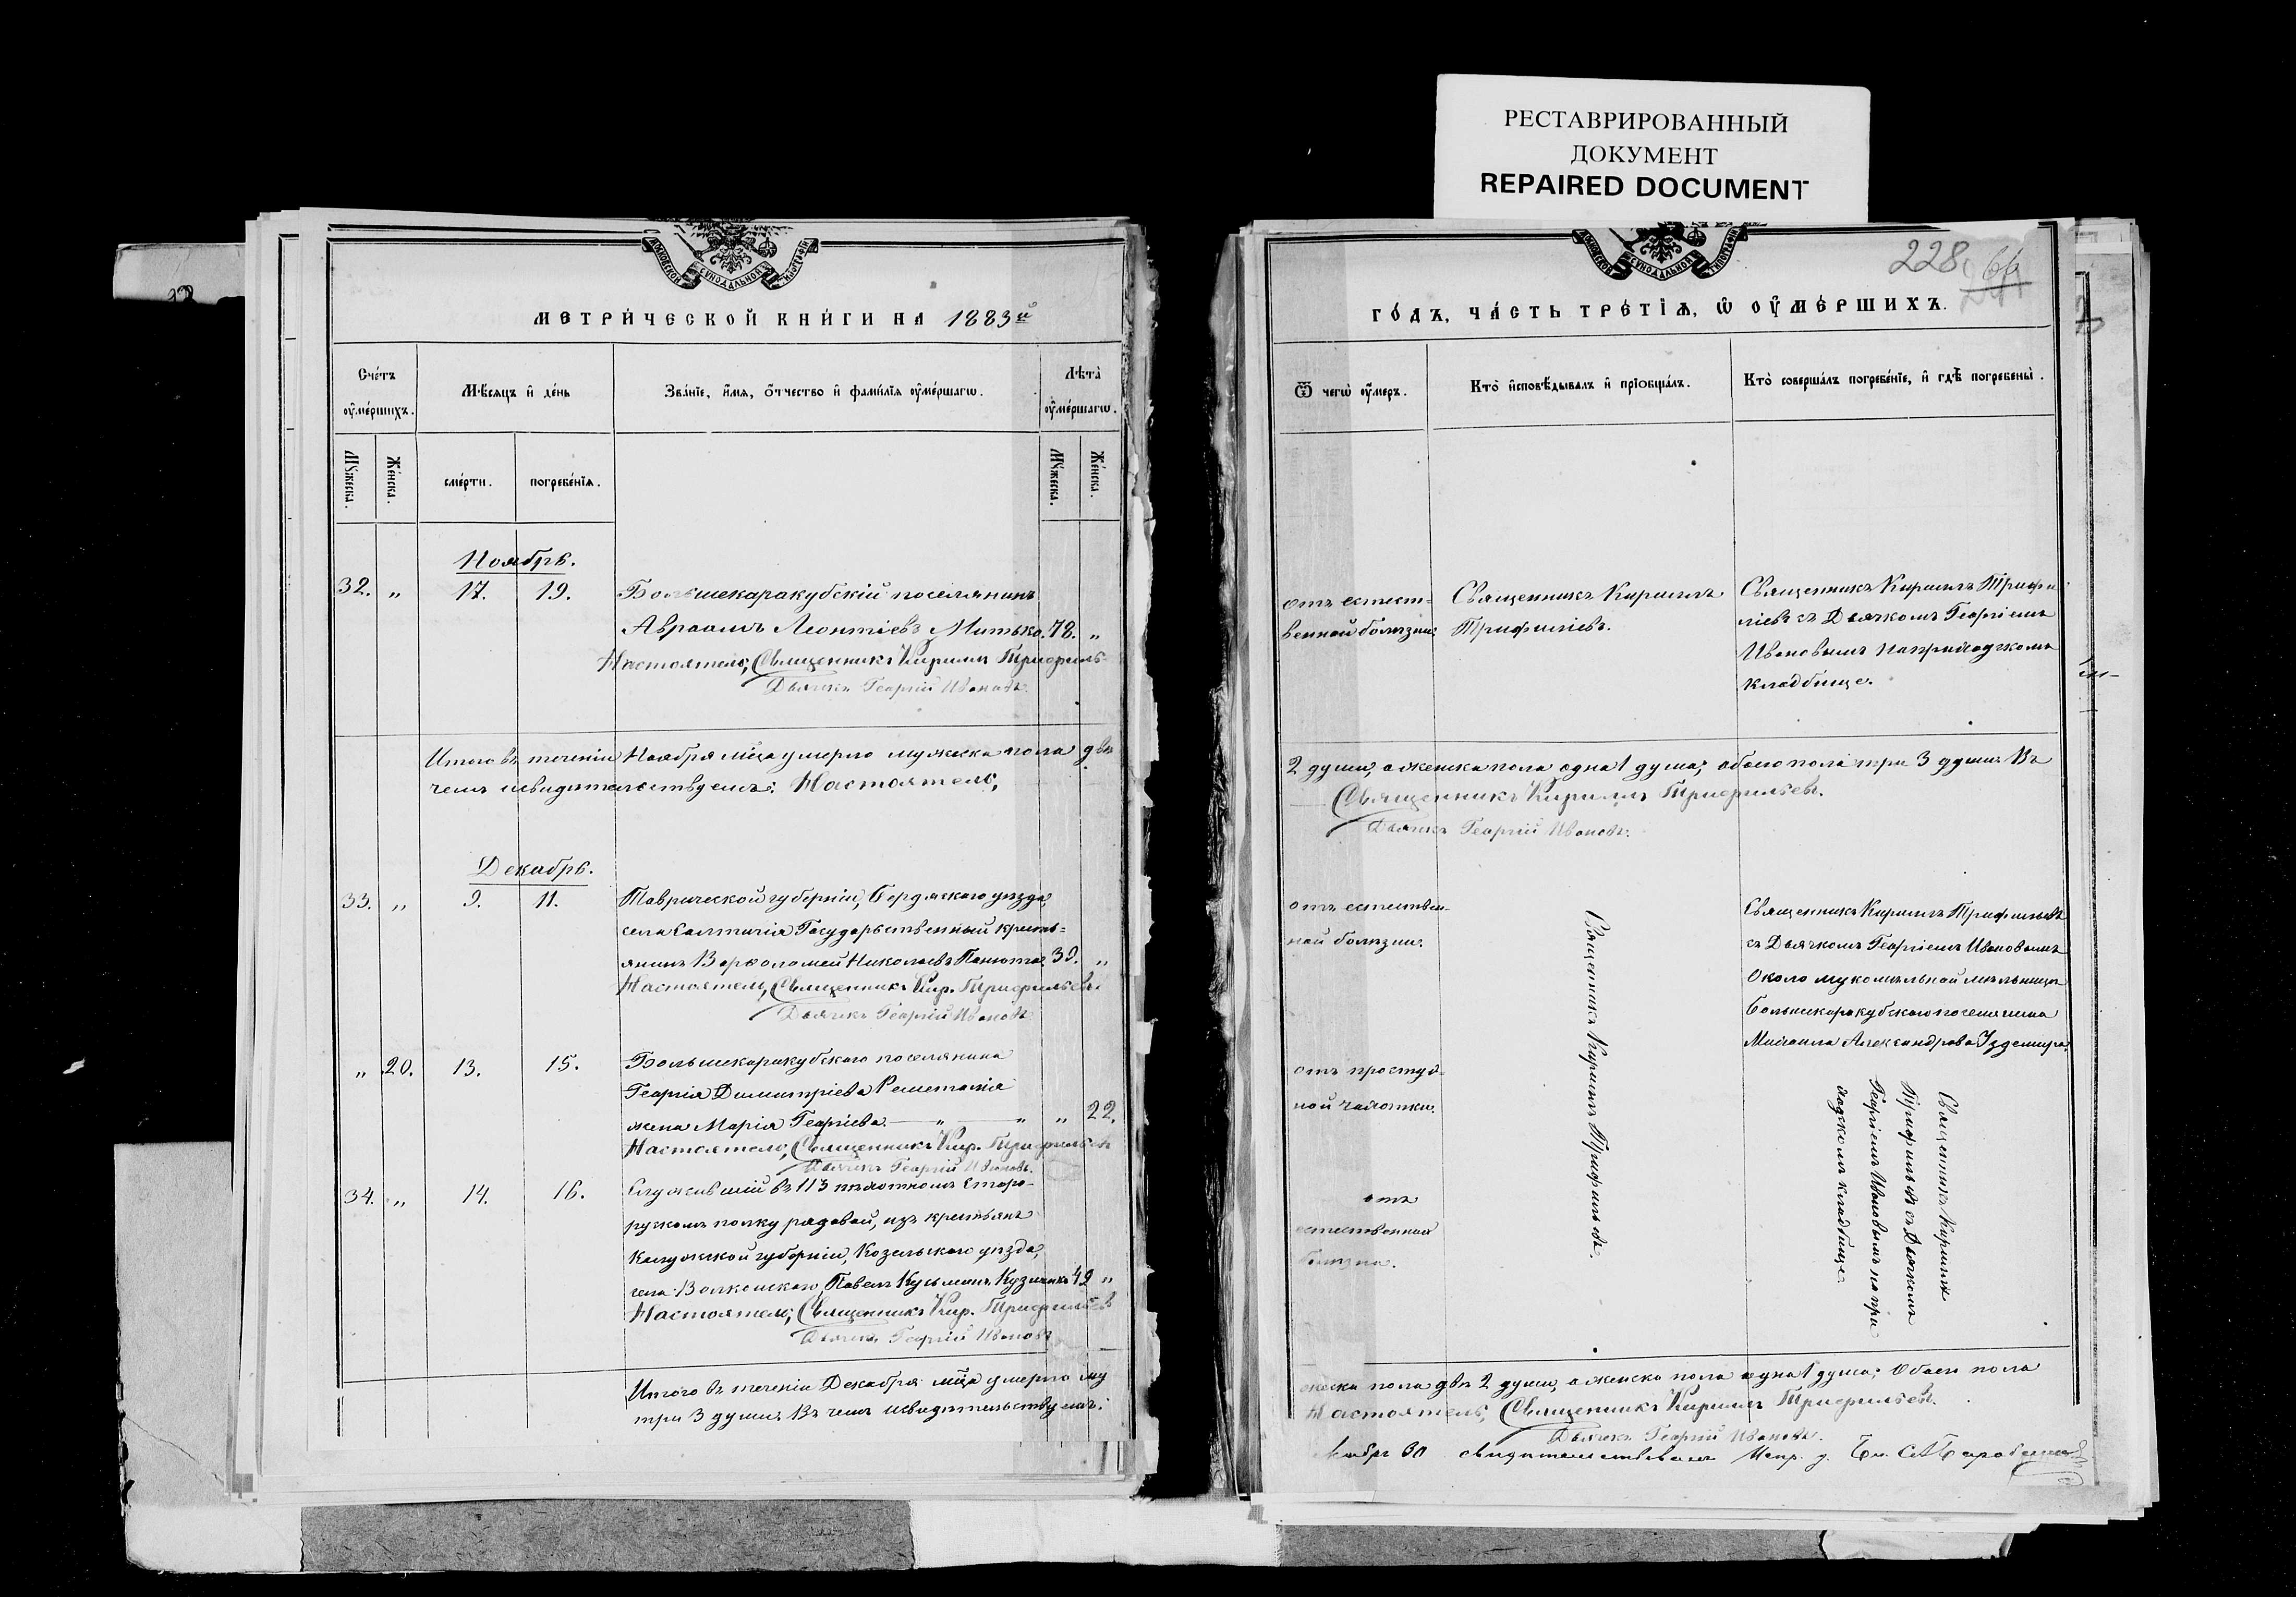 РЕСТАВРИРОВАННЫЙ
ДОКУМЕНТ
REPAIRED DOCUMENT
МОСКОВСКОЙ СѴНОДАЛЬНОЙ ТИПОГРАФІИ
МЕТРИ́ЧЕСКОЙ КНИ́ГИ НА 1883й
Сче́тъ ᲂу҆ме́ршихъ.
Мѣ́сяцъ и҆ де́нь
Зва́нїе, и҆́мя, ѻ҆́тчество и҆ фами́лїя ᲂу҆ме́ршагѡ.
Лѣта̀ ᲂу҆ме́ршагѡ.
Мꙋ́жеска.
Же́нска.
сме́рти.
погребе́нїя.
Мꙋ́жеска.
Же́нска.
Ноябрь.
32. „ 17. 19. Большекаракубскій поселянинъ
Авраамъ Леонтіевъ Митько. 78. „
Настоятель, Священникъ Кириллъ Трифильев
Дьячекъ Георгій Ивановъ.
Итого въ теченіи Ноября мѣца умерло мужеска пола двѣ
чемъ и свидѣтельствуемъ: Настоятель,
Декабрь.
33. „ 9. 11. Таврической губерніи, Бердянскаго уѣзда,
села Салтичія Государственный кресть=
янинъ Варѳоломей Николаевъ Панюта. 39. „
Настоятель, Священникъ Кир. Трифильевъ
Дьячекъ Георгій Ивановъ
„ 20. 13. 15. Большекаракубскаго поселянина
Георгія Димитріева
жена Марія Георгіева. — „ — „ „ 22.
Настоятель, Священникъ Кир. Трифильевъ
Дьячекъ Георгій Ивановъ.
34. „ 14. 16. Служившій въ 113 пѣхотномъ Старо-
русскомъ полку рядовой, изъ крестьянъ
Калужской губерніи, Козельскаго уѣзда,
села Павелъ Кузьминъ 49 „
Настоятель, Священникъ Кир. Трифильевъ
Дьячекъ Георгій Ивановъ
Итого въ теченіи Декабря мѣца умерло му
три 3 души. Въ чемъ и свидѣтельствуемъ:
МОСКОВСКОЙ СѴНОДАЛЬНОЙ ТИПОГРАФІИ
228 66
ГО́ДЪ, ЧА́СТЬ ТРЕ́ТІѦ, Ѡ҆ ОУ҆МЕ́РШИХЪ.
Ѿ чегѡ̀ ᲂу҆́меръ.
Кто̀ и҆сповѣ́дывалъ и҆ прїѻбща́лъ.
Кто̀ соверша́лъ погребе́нїе, и҆ гдѣ̀ погребены̀.
отъ естест=
венной болѣзни.
Священникъ Кириллъ
Трифиліевъ.
Священникъ Кириллъ Трифи
ліевъ съ Дьячкомъ Георгіемъ
Ивановымъ на приходскомъ
кладбище.
2 души, а женска пола одна 1 душа; обоего пола три 3 души. Въ
Священникъ Кириллъ Трифильевъ.
Дьячекъ Георгій Ивановъ.
отъ естествен-
ной болѣзни.
Священникъ Кириллъ Трифильевъ.
Священникъ Кириллъ Трифильевъ
съ Дьячкомъ Георгіемъ Ивановымъ
Около мукомельной мельницы
Большекаракубскаго поселянина
Михаила Александрова Уздемира.
отъ простуд-
ной чахотки.
отъ
естественной
болѣзни.
Священникъ Кириллъ
Трифильевъ съ Дьячкомъ
Георгіемъ Ивановымъ на при
ходскомъ кладбище.
жеска пола двѣ 2 души, а женска пола одна 1 душа; Обоего пола
Настоятель, Священникъ Кириллъ Трифильевъ.
Дьячекъ Георгій Ивановъ.
30 свидѣтельствовалъ Испр. д.